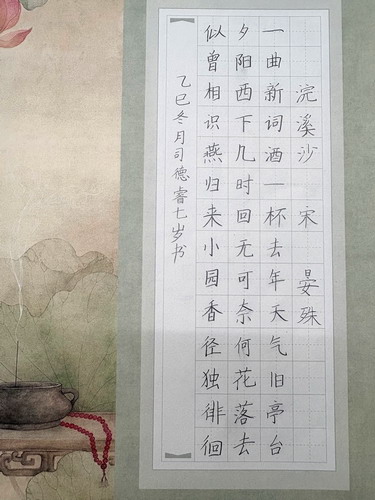 浣溪沙 宋 晏殊
一曲新词酒一杯去年天气旧亭台
夕阳西下几时回无可奈何花落去
似曾相识燕归来小园香径独徘徊
乙巳冬月司德睿七岁书